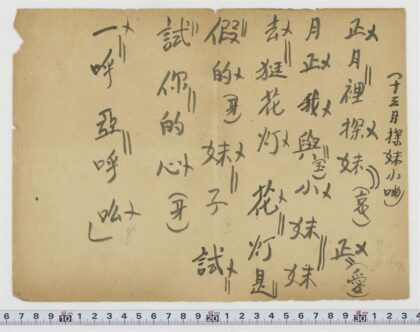 (十三月探妹小曲)
正月裡探妹(哀)正(愛)
月正我與小妹妹
去逛花灯花灯是
假的(牙)妹子試
試你的心(牙)
一呼亞呼吆
6 7 8 9 10 1 2 3 4 5 6 7 8 9 20 1 2 3 4 5 6 7 8 9 30 1 2 3